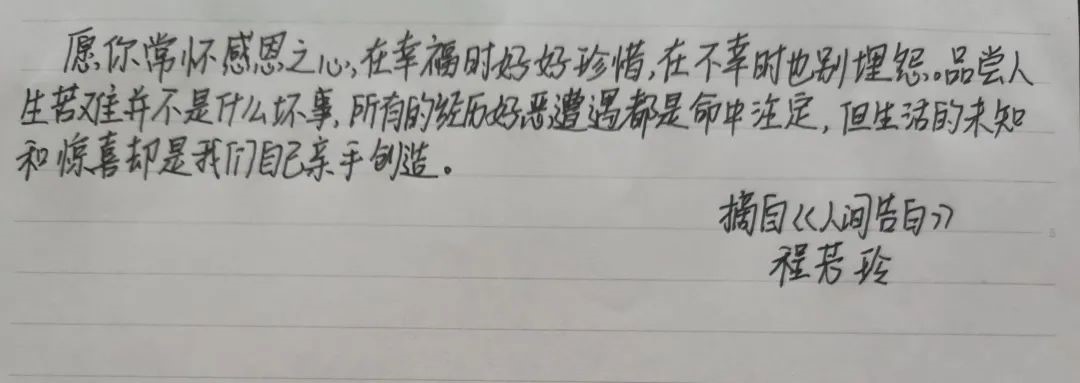 愿你常怀感恩之心,在幸福时好好珍惜,在不幸时也别埋怨。品尝人
生苦难并不是什么坏事,所有的经历好恶遭遇都是命中注定,但生活的未知
和惊喜却是我们自己亲手创造。
摘自《人间告白》
程若玲